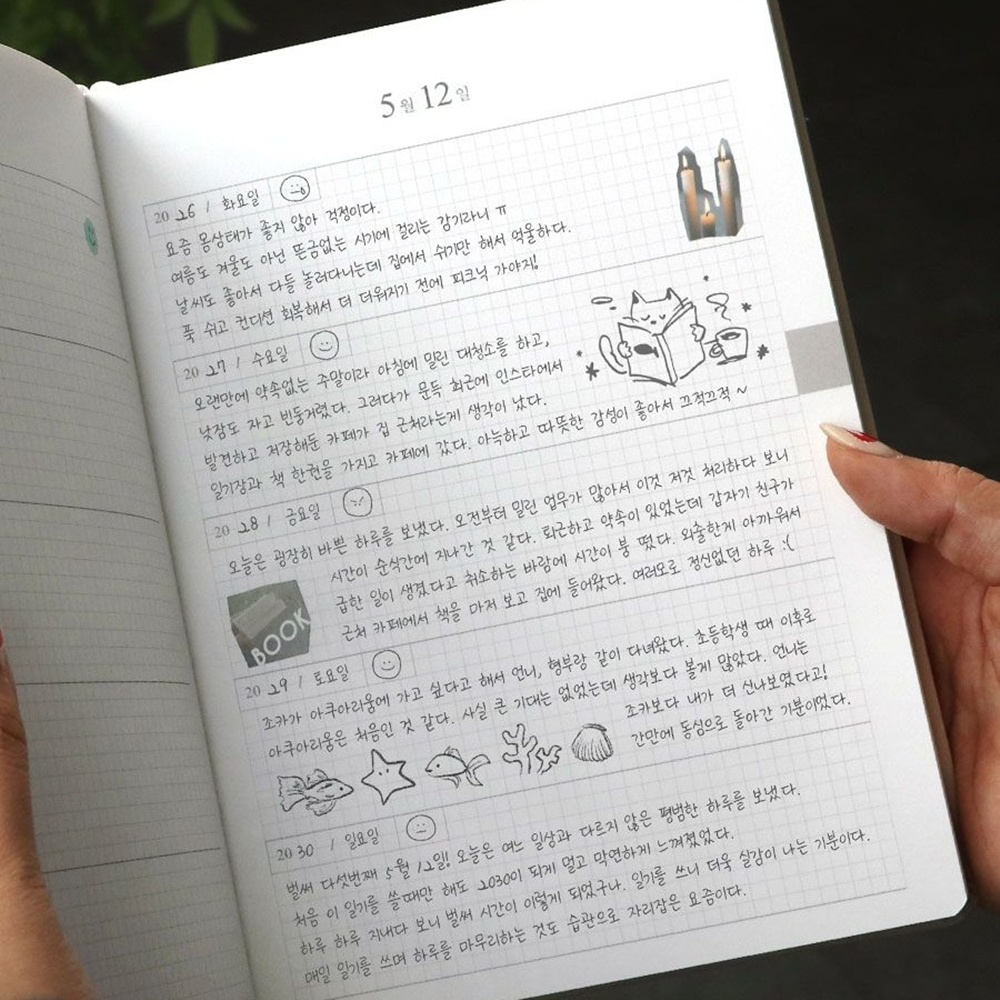 5월 12일
2026 / 화요일
요즘 몸상태가 좋지 않아 걱정이다.
여름도 겨울도 아닌 뜬금없는 시기에 걸리는 감기라니 ㅠ
날씨도 좋아서 다들 놀러다니는데 집에서 쉬기만 해서 억울하다.
푹 쉬고 컨디션 회복해서 더 더워지기 전에 피크닉 가야지!
2027 / 수요일
오랜만에 약속없는 주말이라 아침에 밀린 대청소를 하고,
낮잠도 자고 빈둥거렸다. 그러다가 문득 최근에 인스타에서
발견하고 저장해둔 카페가 집 근처라는게 생각이 났다.
일기장과 책 한권을 가지고 카페에 갔다. 아늑하고 따뜻한 감성이 좋아서 끄적끄적 ~
2028 / 금요일
오늘은 굉장히 바쁜 하루를 보냈다. 오전부터 밀린 업무가 많아서 이것 저것 처리하다 보니
시간이 순식간에 지나간 것 같다. 퇴근하고 약속이 있었는데 갑자기 친구가
급한 일이 생겼다고 취소하는 바람에 시간이 붕 떴다. 외출한게 아까워서
근처 카페에서 책을 마저 보고 집에 들어왔다. 여러모로 정신없던 하루 :(
BOOK
2029 / 토요일
조카가 아쿠아리움에 가고 싶다고 해서 언니, 형부랑 같이 다녀왔다. 초등학생 때 이후로
아쿠아리움은 처음인 것 같다. 사실 큰 기대는 없었는데 생각보다 볼게 많았다. 언니는
조카보다 내가 더 신나보였다고!
간만에 동심으로 돌아간 기분이었다.
2030 / 일요일
벌써 다섯번째 5월 12일! 오늘은 여느 일상과 다르지 않은 평범한 하루를 보냈다.
처음 이 일기를 쓸때만 해도 2030이 되게 멀고 막연하게 느껴졌었다.
하루 하루 지내다 보니 벌써 시간이 이렇게 되었구나. 일기를 쓰니 더욱 실감이 나는 기분이다.
매일 일기를 쓰며 하루를 마무리하는 것도 습관으로 자리잡은 요즘이다.